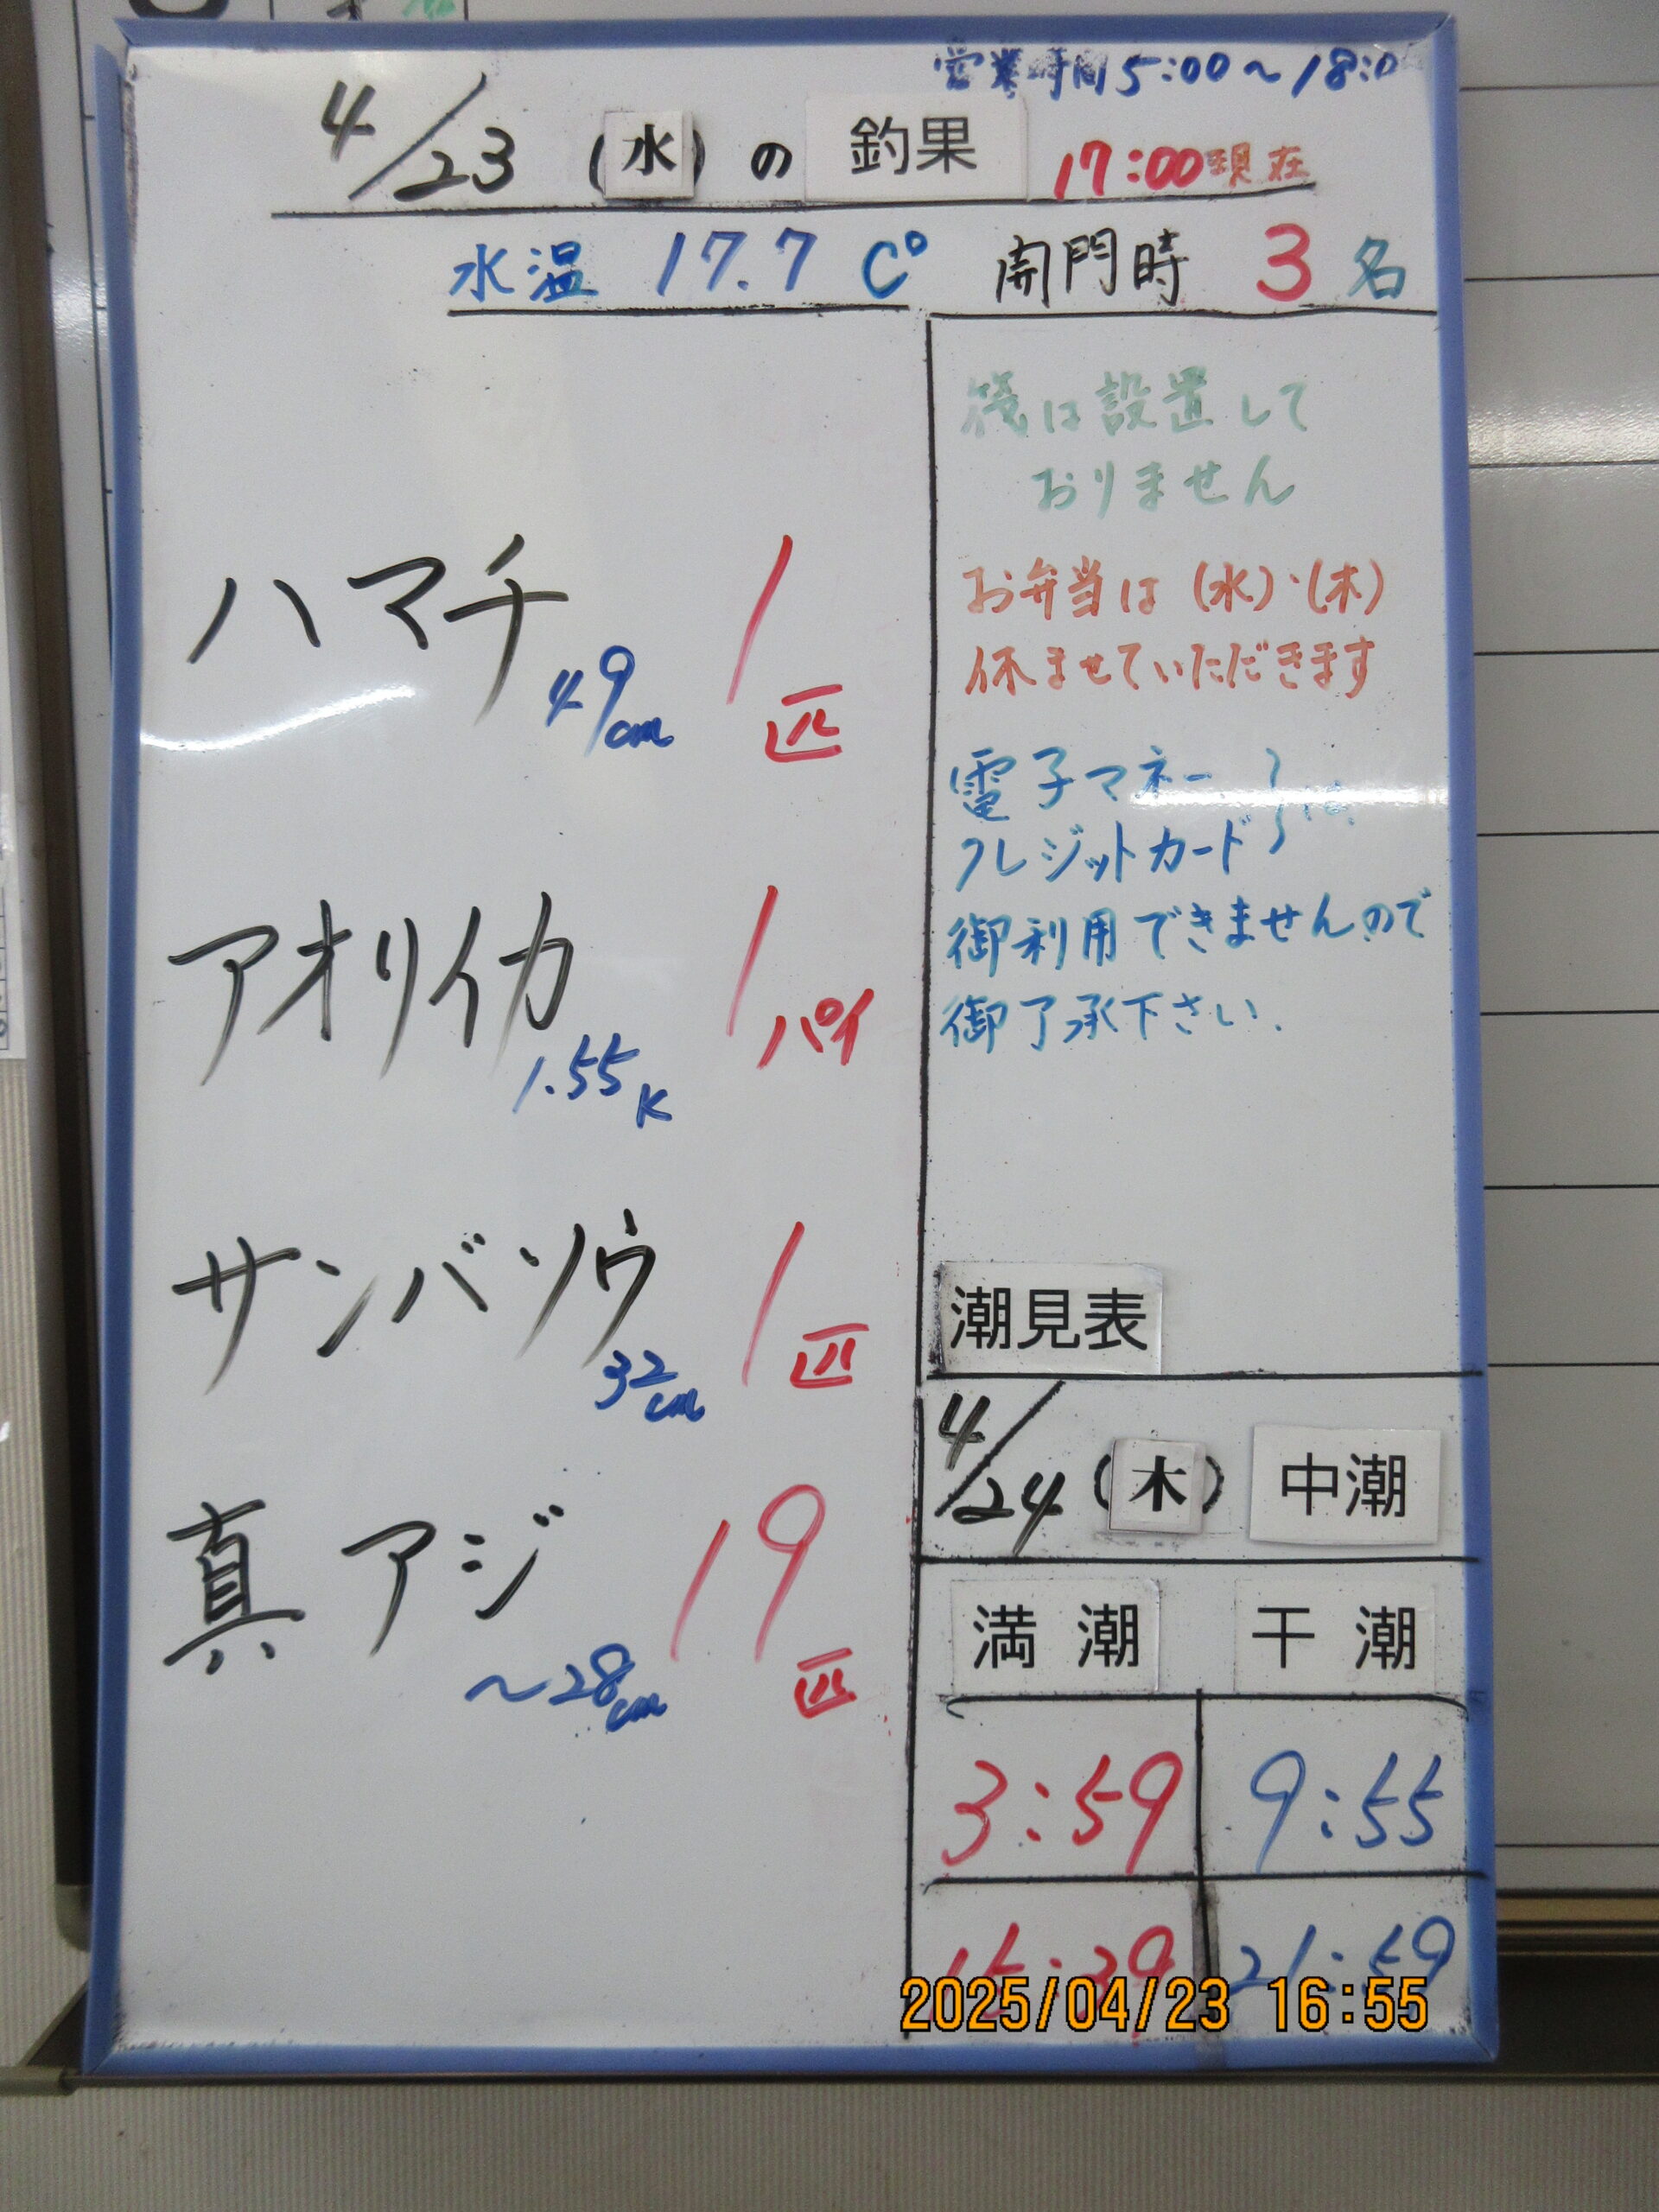 営業時間 5:00～18:0
4/23 (水) の 釣果 17:00現在
水温 17.7 C° 開門時 3名
ハマチ 49cm 1匹
アオリイカ 1.55K 1パイ
サンバソウ 32cm 1匹
真アジ ～28cm 19匹
筏は設置して
おりません
お弁当は(水)・(木)
休ませていただきます
電子マネー
クレジットカード は
御利用できませんので
御了承下さい.
潮見表
4/24 (木) 中潮
満潮 干潮
3:59 9:55
15:39 21:59
2025/04/23 16:55